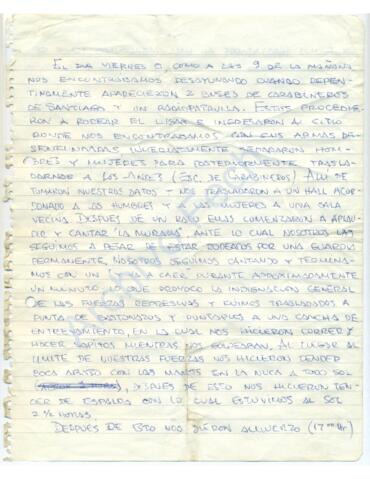 EL DIA VIERNES 8, COMO A LAS 9 DE LA MAÑANA
NOS ENCONTRABAMOS DESAYUNANDO CUANDO REPEN-
TINAMENTE APARECIERON 2 BUSES DE CARABINEROS
DE SANTIAGO Y UN RADIOPATRULLA. ESTOS PROCEDIE-
RON A RODEAR EL LUGAR E INGRESARON AL SITIO
DONDE NOS ENCONTRABAMOS CON SUS ARMAS DE-
SENFUNDADAS INMEDIATAMENTE SEPARARON HOM-
BRES Y MUJERES PARA POSTERIORMENTE TRASLA-
DARNOS A LOS ANDES (ESC. DE CARABINEROS) ALLI SE
TOMARON NUESTROS DATOS Y NOS TRASLADARON A UN HALL ACOR-
DONADO A LOS HOMBRES Y LAS MUJERES A UNA SALA
VECINA DESPUES DE UN RATO ELLAS COMENZARON A APLAU-
DIR Y CANTAR "LA MURALLA", ANTE LO CUAL NOSOTROS LAS
SEGUIMOS A PESAR DE ESTAR RODEADOS POR UNA GUARDIA
PERMANENTE, NOSOTROS SEGUIMOS CANTANDO Y TERMINA-
MOS CON UN Y CAER, DURANTE APROXIMADAMENTE
UN MINUTO, QUE PROVOCO LA INDIGNACION GENERAL
DE LAS FUERZAS REPRESIVAS Y FUIMOS TRASLADADOS A
PUNTA DE Y PUNTAPIES A UNA CANCHA DE
ENTRENAMIENTO, EN LA CUAL NOS HICIERON CORRER Y
HACER SAPITOS MIENTRAS NOS GOLPEABAN, AL LLEGAR AL
LIMITE DE NUESTRAS FUERZAS NOS HICIERON TENDER
BOCA ABAJO CON LAS MANOS EN LA NUCA A TODO SOL
DESPUES DE ESTO NOS HICIERON TEN-
DER DE ESPALDA CON LO CUAL ESTUVIMOS AL SOL
2 1/2 HORAS.
DESPUES DE ESTO NOS DIERON ALMUERZO (17 00 Hr)